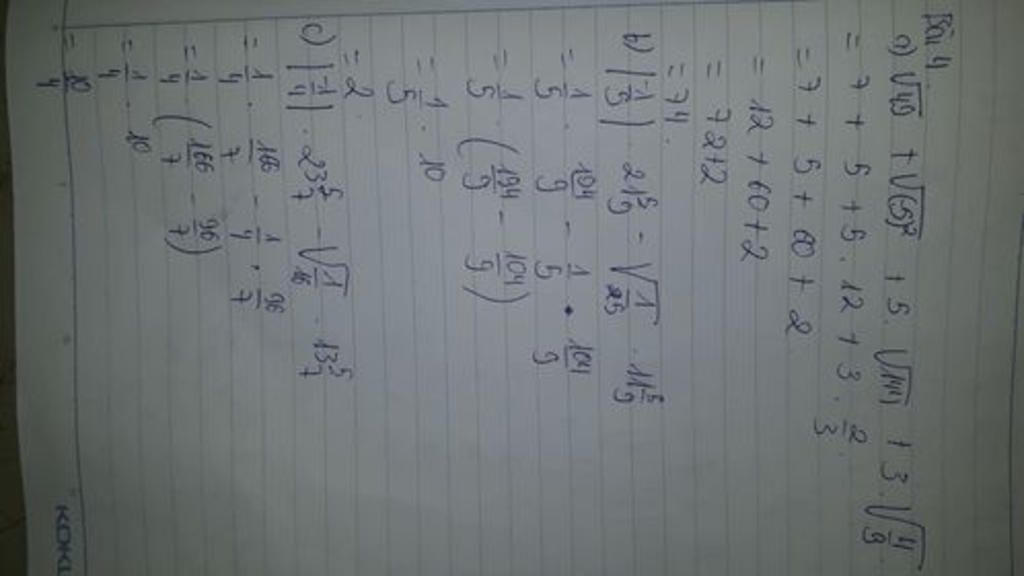 Bài 4.
a) √49 + √(-5)² + 5. √144 + 3. √4/9
= 7 + 5 + 5. 12 + 3. 2/3
= 7 + 5 + 60 + 2
= 12 + 60 + 2
= 72+2
= 74.
b) |-1/5| . 21 5/9 - √1/25 . 11 5/9
= 1/5 . 194/9 - 1/5 . 104/9
= 1/5 (194/9 - 104/9)
= 1/5 . 10
= 2
c) |-1/4| . 23 5/7 - √1/16 . 13 5/7
= 1/4 . 166/7 - 1/4 . 96/7
= 1/4 (166/7 - 96/7)
= 1/4 . 10
= 10/4